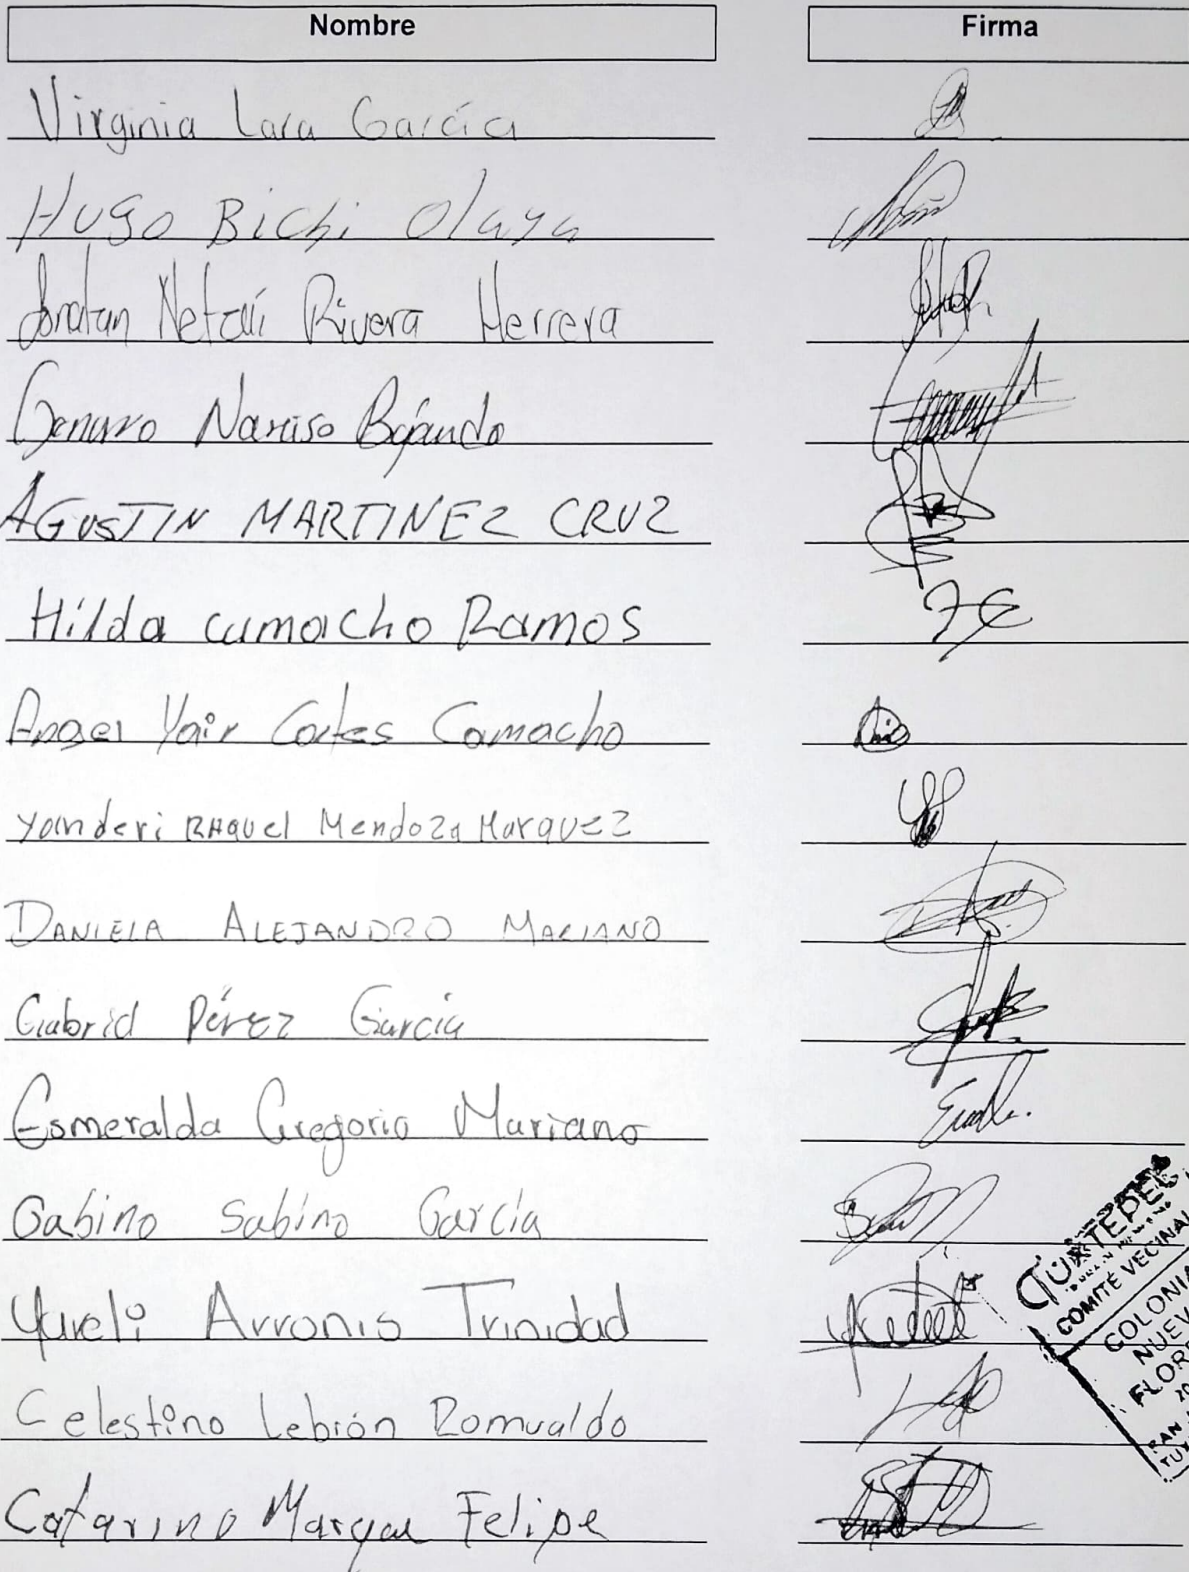 Nombre Firma
Virginia Lara García
Hugo Bichi Olaya
Jonatan Netalí Rivera Herrera
Genaro Narciso
AGUSTIN MARTINEZ CRUZ
Hilda camacho Ramos
Angel Yair Cortes Camacho
Yanderi RAquel Mendoza Marquez
DANIELA ALEJANDRO MARIANO
Gabriel Pérez García
Esmeralda Gregorio Mariano
Gabino Sabino García
Yureli Arronis Trinidad
Celestino Lebrón Romualdo
Catarino Felipe
TUXTEPEC
COMITÉ VECINAL
COLONIA